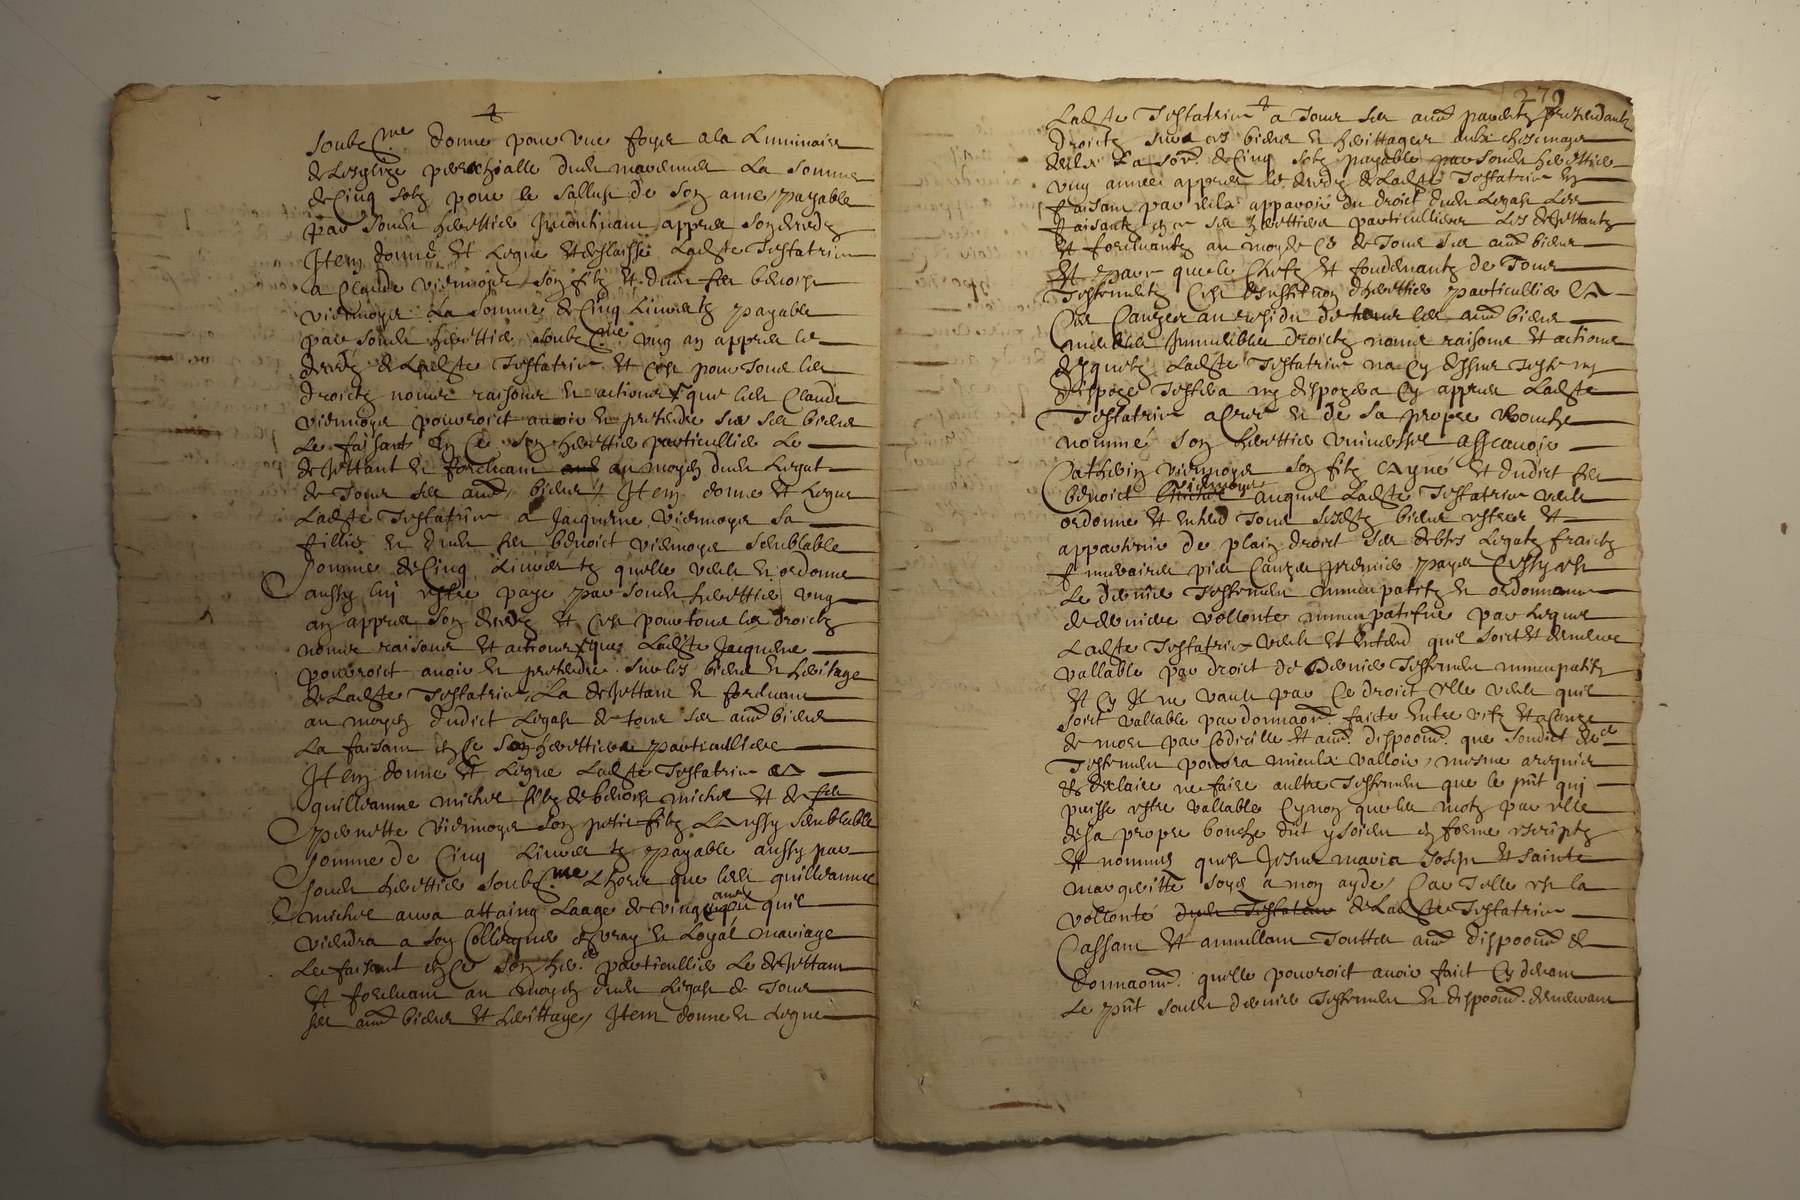 donne pour une foys a la Luminaire
de Lesglize parrochialle dud. La Somme
de Cinq solz pour le Sallut de son ame payable
par sond herittier Incontinant appres son deced
Item donne Et Legue Et delaisse Ladte Testatrix
a Claude viermoyse son filz Et dud feu benoist
viermoyse La somme de Cinq Livres tz payable
par sond herittier ung an appres le
deced de Ladte Testatrix Et Cest pour Tous les
droictz noms raisons et actions que led Claude
viermoyse pourroict avoir et pretendre sur ses biens
Le faisant En Ce son herittier particullier Le
dejettant et forcluant au moyen dud Legat
de Tous ses autres biens / Item donne Et Legue
Ladte Testatrix a Jacqueme viermoyse sa
fillie et dud feu benoict viermoyse semblable
somme de Cinq Livres tz quelle veult et ordonne
aussy luy estre paye par sond herittier ung
an appres son deced Et Cest pour tous les droictz
noms raisons et actions que Ladte Jacqueme
pourroict avoir et pretendre sur les biens et heritage
de Ladte Testatrix La dejettant et forcluant
au moyen dudict Legat de tous ses autres biens
La faisant en Ce son herittiere particulliere
Item donne Et Legue Ladte Testatrix a
guilleaume michel filz de benoist michel Et de feue
pernette viermoyse son petit filz aussy semblable
somme de Cinq Livres tz payable aussy par
sond herittier Lhors que led guilleaume
michel aura attaing Laage de vingt cinq ans quil
viendra a son Colloquer en vray et Loyal mariage
Le faisant en Ce son her particullier Le dejettant
Et forcluant au moyen dud Legat de Tous
ses autres biens Et herittages / Item donne et Legue
279
Ladte Testatrix a Tous ses autres parentz pretendantz
droictz sur ces biens et herittages
La som. de Cinq solz payable par sond herittier
ung annee appres le deced de Ladte Testatrix
faisant par eulx apparoir du droict dud Legat Les
faisant en ce ses herittiers particulliers Les dejettantz
Et forcluantz au moyen de ce de Tous ses autres biens
Et pour que le Chefz Et fondement de Tous
Testamentz Cest Linstitution dherittier particullier Et
au residu de ses autres biens
meubles Immeubles droictz noms raisons Et actions
desquelz Ladte Testatrix na Cy dessus Teste ny
dispoze Testera ny dispozera Cy appres Ladte
Testatrix a Cree et de sa propre bouche
nomme son herittier universel asscavoir
viermoyse son filz Et dudict feu
benoict viermoyse auquel Ladte Testatrix veult
ordonne Et entend Tous susdtz biens estre Et
appartenir de plain droict ses debtes Legatz fraictz
funeraires payes Cest
Le dernier Testament nuncupatifz et ordonnance
de derniere vollonte nuncupatifve par Lequel
Ladte Testatrix veult Et Entend quil soict Et demeure
vallable par droict de Dernier Testament nuncupatifz
Et Cy Il ne vault par Ce droict Elle veult quil
soict vallable par donnaon. faicte Entre vifz Et a Cause
de mort par Codicille Et autre dispoon. que sondict
Testament pourra mieulx valloir mesme
declaire ne faire aultre Testament que le pnt qui
puisse estre vallable Cynon que les motz par elle
de sa propre bouche dit y soient en forme escriptz
Et nommes quest Jesus maria Joseph Et sainte
margueritte soyes a mon ayde / Car Telle est la
vollonté de Ladte Testatrix
Cassant Et annullant Touttes autres dispoon. et
donnaon. quelle pourroict avoir faict Cy devant
Le pnt soubz dernier Testament et dispoon. demeurant